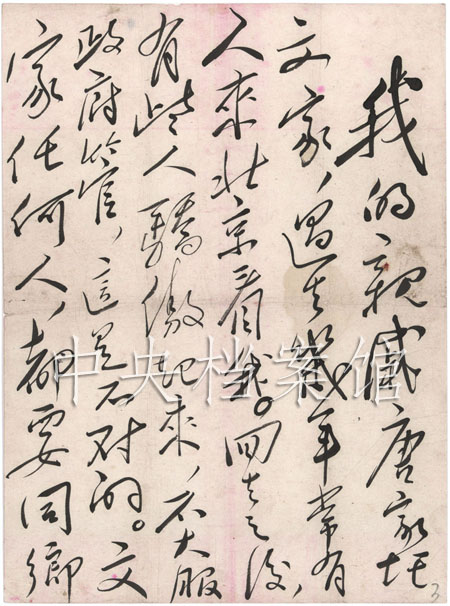 我的亲戚唐家圫
文家，过去几年常有
人来北京看我。回去之后，
有些人骄傲起来，不大服
政府管，这是不对的。文
家任何人，都要同乡
中央档案馆
3